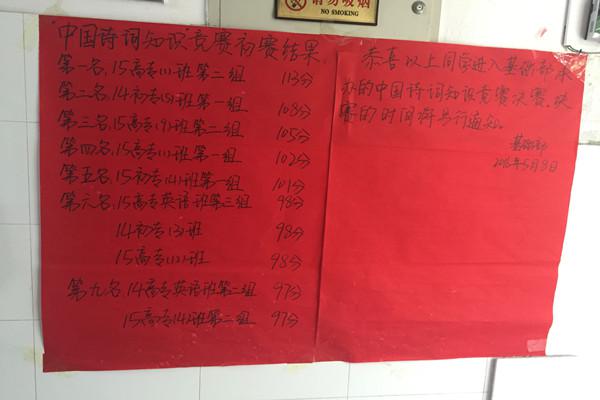 请勿吸烟
NO SMOKING
“中国诗词知识”竞赛初赛结果
第一名,15高专(1)班第二组 113分
第二名,14初专(5)班第一组 108分
第三名,15高专(9)班第二组 105分
第四名,15高专(1)班第一组 102分
第五名,15初专(4)班第一组 101分
第六名,15高专英语班第三组 98分
14初专(3)班 98分
15高专(2)班 98分
第九名,14高专英语班第二组 97分
15高专(4)班第二组 97分
恭喜以上同学进入基础部承
办的中国诗词知识竞赛决赛,决
赛的时间将另行通知。
基础部
2016年5月9日